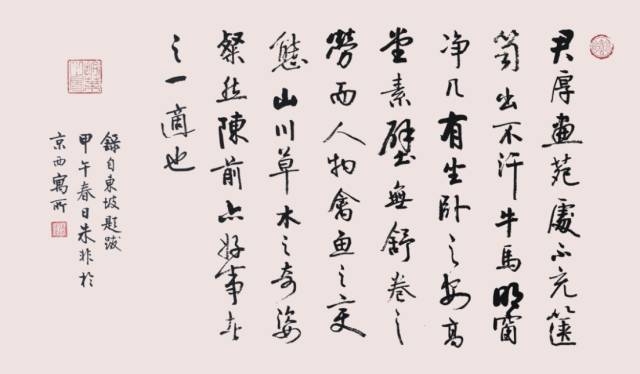 君厚画苑处不充箧
笥出不汗牛馬明窗
净几有坐卧之安高
堂素壁無舒卷之
勞而人物禽鱼之变
態山川草木之奇姿
粲然陳前亦好事者
之一適也
錄自東坡題跋
甲午春日朱非於
京西寓所